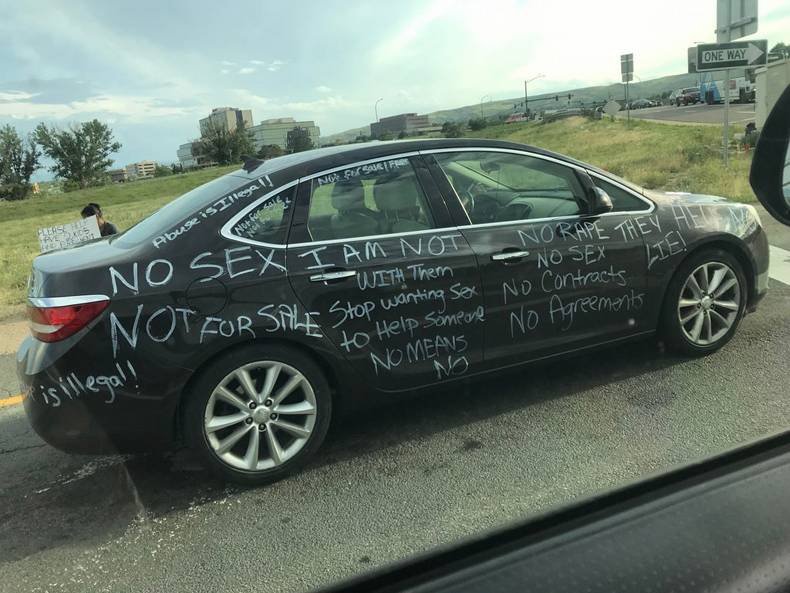 ONE WAY
PLEASE HELP
Abuse is Illegal!!
NOT FOR SALE
NOT FOR SALE! FREE
NO SEX I AM NOT
WITH Them
NOT FOR SALE
Stop wanting Sex
to Help Someone
NO MEANS
NO
is illegal!
NO RAPE THEY
NO SEX
LIE!
NO Contracts
NO Agreements